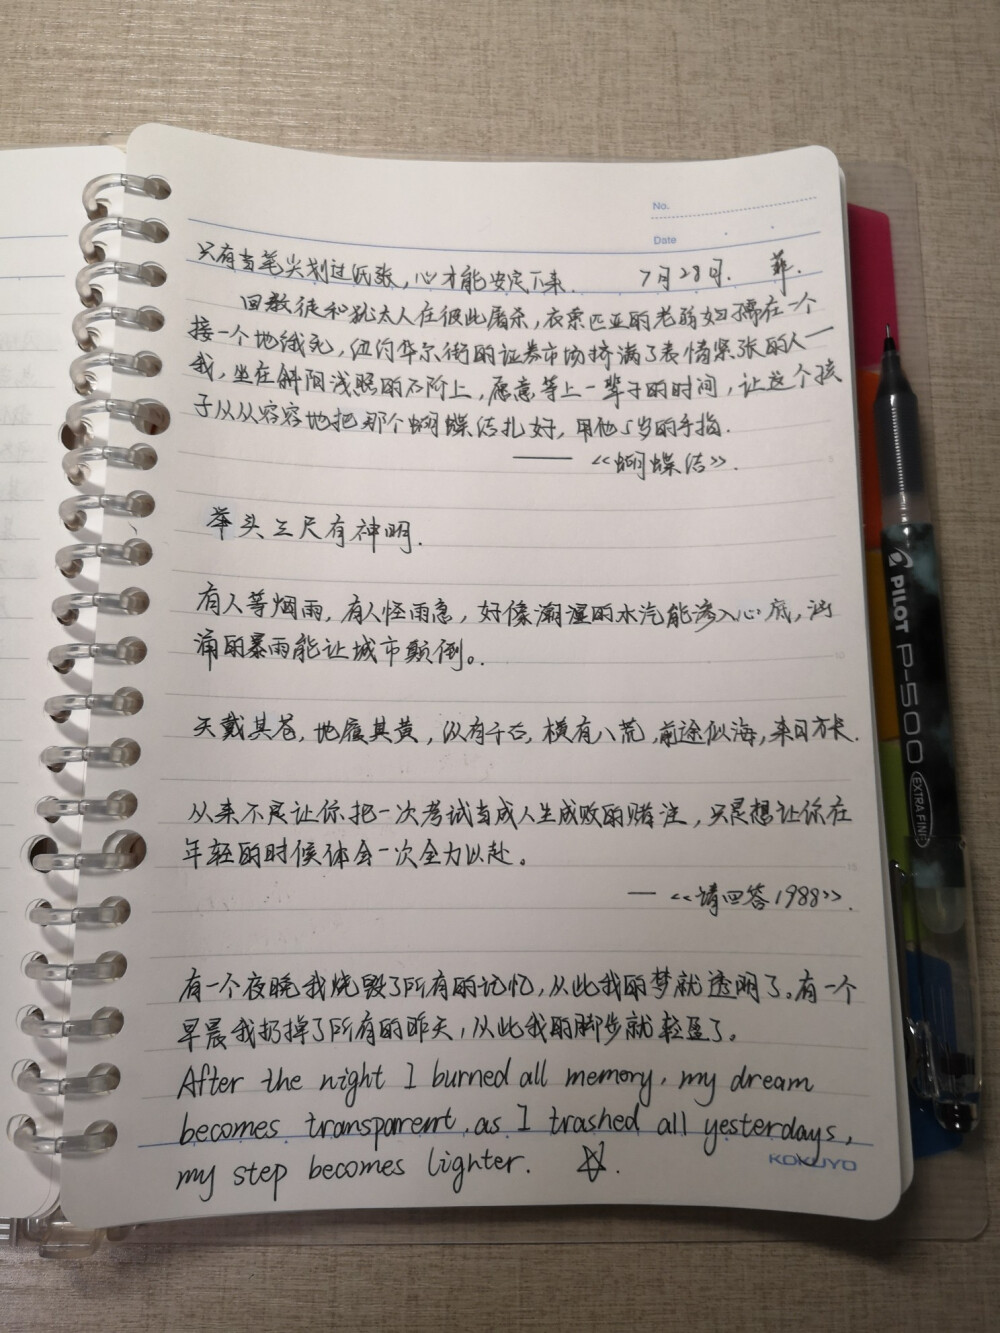 No.
Date
只有当笔尖划过纸张，心才能安定下来. 7月28日. 菲.
回教徒和犹太人在彼此屠杀，衣索匹亚的老弱妇孺在一个
接一个地饿死，纽约华尔街的证券市场挤满了表情紧张的人——
我，坐在斜阳浅照的石阶上，愿意等上一辈子的时间，让这个孩
子从从容容地把那个蝴蝶结扎好，用他5岁的手指.
——《蝴蝶结》.
举头三尺有神明.
有人等烟雨，有人怪雨急，好像潮湿的水汽能渗入心底，汹
涌的暴雨能让城市颠倒。.
天戴其苍，地履其黄，纵有千古，横有八荒，前途似海，来日方长.
从来不是让你把一次考试当成人生成败的赌注，只是想让你在
年轻的时候体会一次全力以赴。
—《请回答1988》.
有一个夜晚我烧毁了所有的记忆，从此我的梦就透明了。有一个
早晨我扔掉了所有的昨天，从此我的脚步就轻盈了。
After the night I burned all memory, my dream
becomes transparent, as I trashed all yesterdays,
my step becomes lighter.
KOKUYO
PILOT P-500 EXTRA FINE